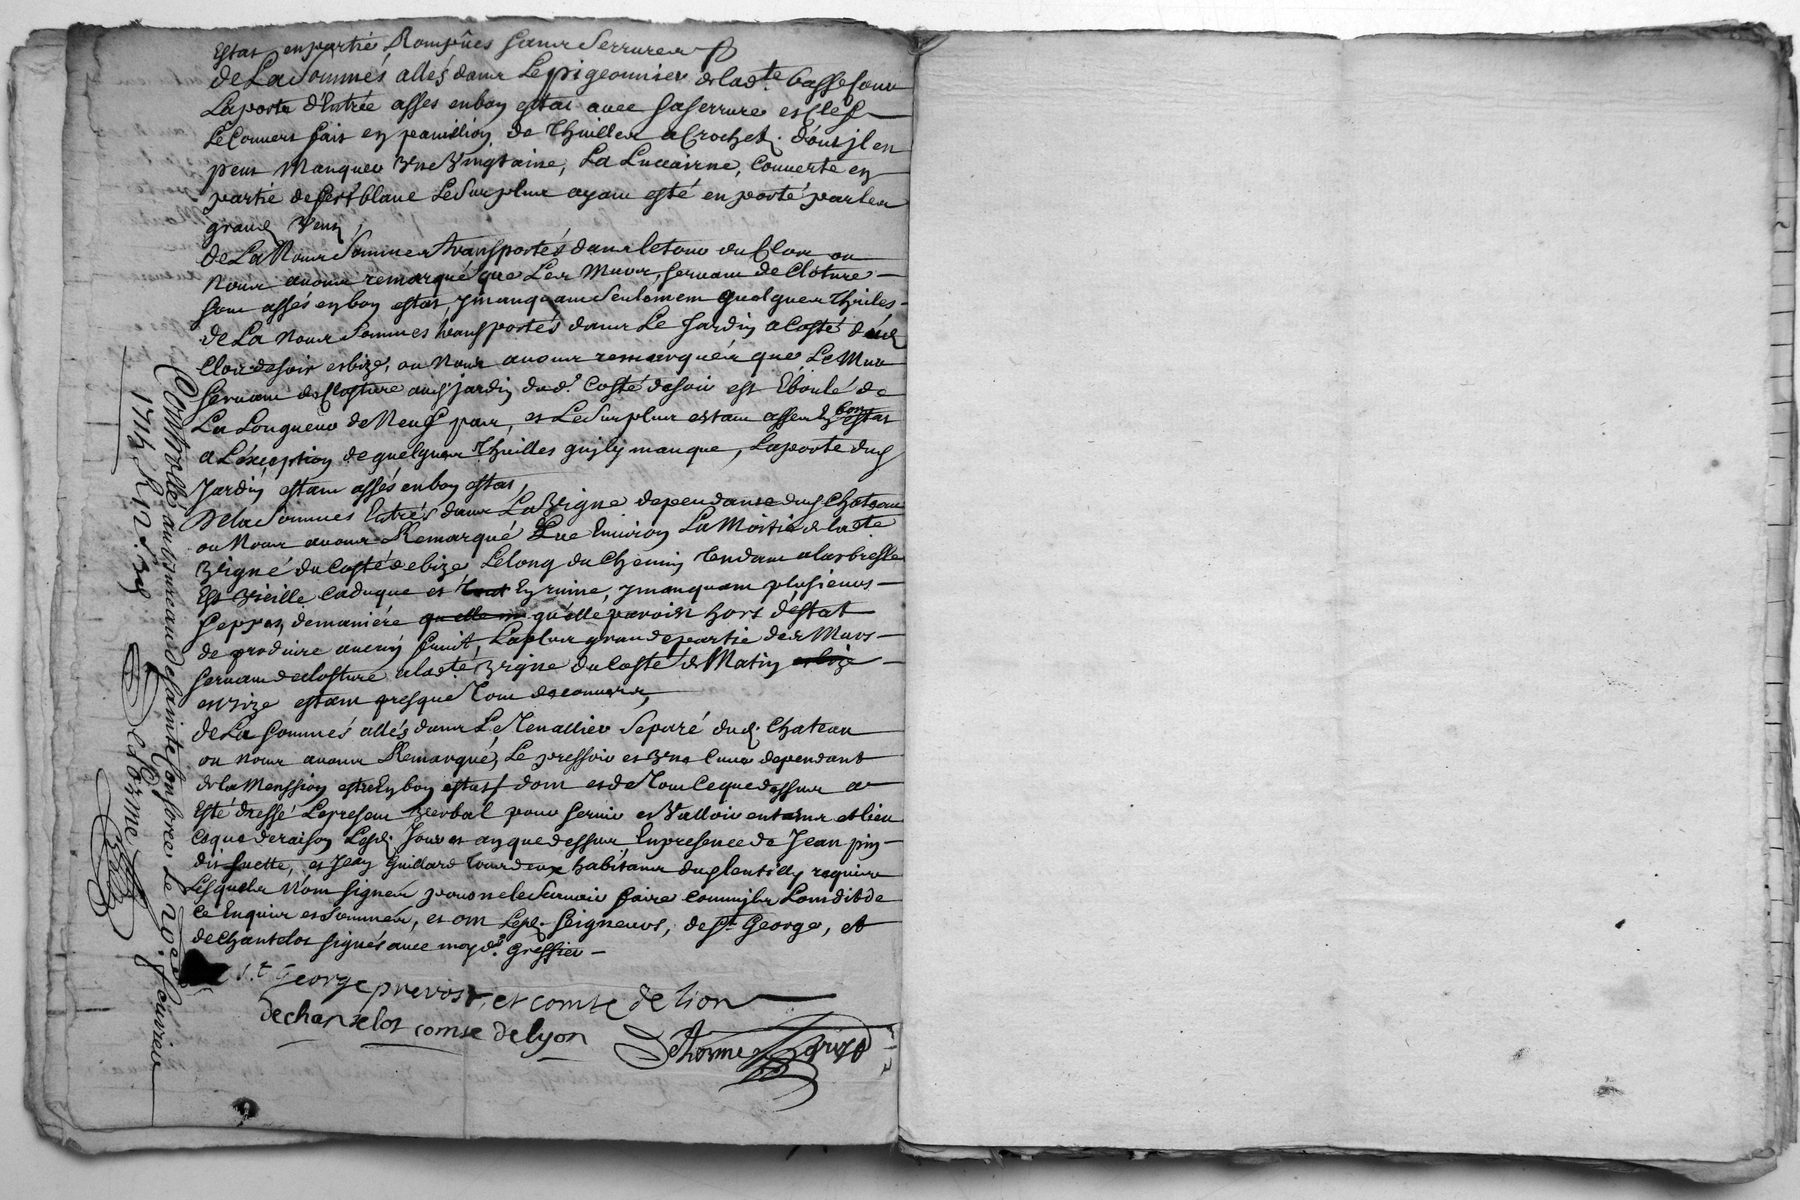 Estat en partie Rompües sans serrures
de La Sommés allés dans Le pigeonnier de lad.te basse cour
La porte d'Entrée assés en bon estat avec sa serrure et Clef
Le Couvert fait en pavillion de Thuilles a Crochet, dont jl en
peut Manquer Vne Vingtaine, La Lucairne, Couverte en
partie de fert blanc Le Surplus ayant esté en porté par les
grand Vent,
de La Nous Sommes transportés dans le tour du Clos ou
Nous avons remarqué que Les Murs, servant de Clôture
sont assés en bon estat, y manquant seulement quelques Thuiles
de La nous Sommes transportés dans Le Jardin a Costé dud.
Clos de soir et bize, ou Nous avons remarqués que Le Mur
servant de Closture aud. jardin du d. Costé de soir est Eboulé de
La Longueur de Neuf pas, et Le Surplus estant assez En bon estat
a L'éxception de quelques Thuilles qu'jl y manque, La porte dud.
Jardin estant assés en bon estat,
De la Sommes Entrés dans La Vigne dependante dud. Chateau
ou Nous avons Remarqué Que Environ La Moitié de lad.te
Vigne du Costé de bize Le long du Chemin Tendant a Larbresle
Est Vieille Caduque et tout En ruine, y manquant plusieurs
seppes, de maniére qu'elle qu'elle paroist hors d'éstat
de produire aucun fruit, La plus grande partie des Murs
servant de closture a lad.te Vigne du Costé de Matin et bize
et bize estant presque Tout decouverts,
de La sommés allés dans Le Tenallier Separé dud. Chateau
ou nous avons Remarqué, Le pressoir et Vne Cuve dependant
de la Menssion estre En bon estat dont et de Tout Ce que dessus a
Esté dressé Le present Verbal pour servir et Valloir en temps et lieu
Ce que de raison Lesd. Jour et an que dessus, En presence de Jean pin
dit suette, et Jean Guillard Tous deux habitants dud. Lentilly requis
Lesquels N'ont signer pour ne le Scavoir faire comm'jls L'ont dit de
Ce Enquis et Sommés, et ont Lesd. Seigneurs, de St George, et
de Chantelot signés avec moy d. Greffier
St George prevost, et comte de lion
de chantelot comte de lyon
Delorme Greffier
Controllé au bureau de sainte Consorce Le Ving. feuvrier
1714. R. 12 s.
Delorme